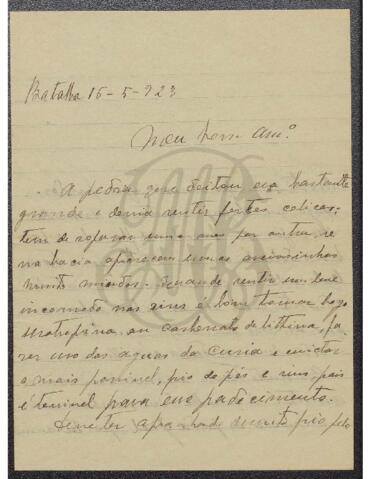 Batalha 16-5-923
Meu bom Amº
A pedra que deitou era bastante
grande e devia sentir fortes colicas:
tem de reparar uma vez por outra, se
na bacia aparecem umas areiasinhas
muito miudas. Quando sentir um leve
incomodo nos rins é bom tomar logo
urotropina ou carbonato de lithina, fa
zer uso das aguas da Curia e evitar
o mais possivel, frio de pés e rins, pois
é terrivel para esse padecimento.
Deve ter apanhado muito frio pelo